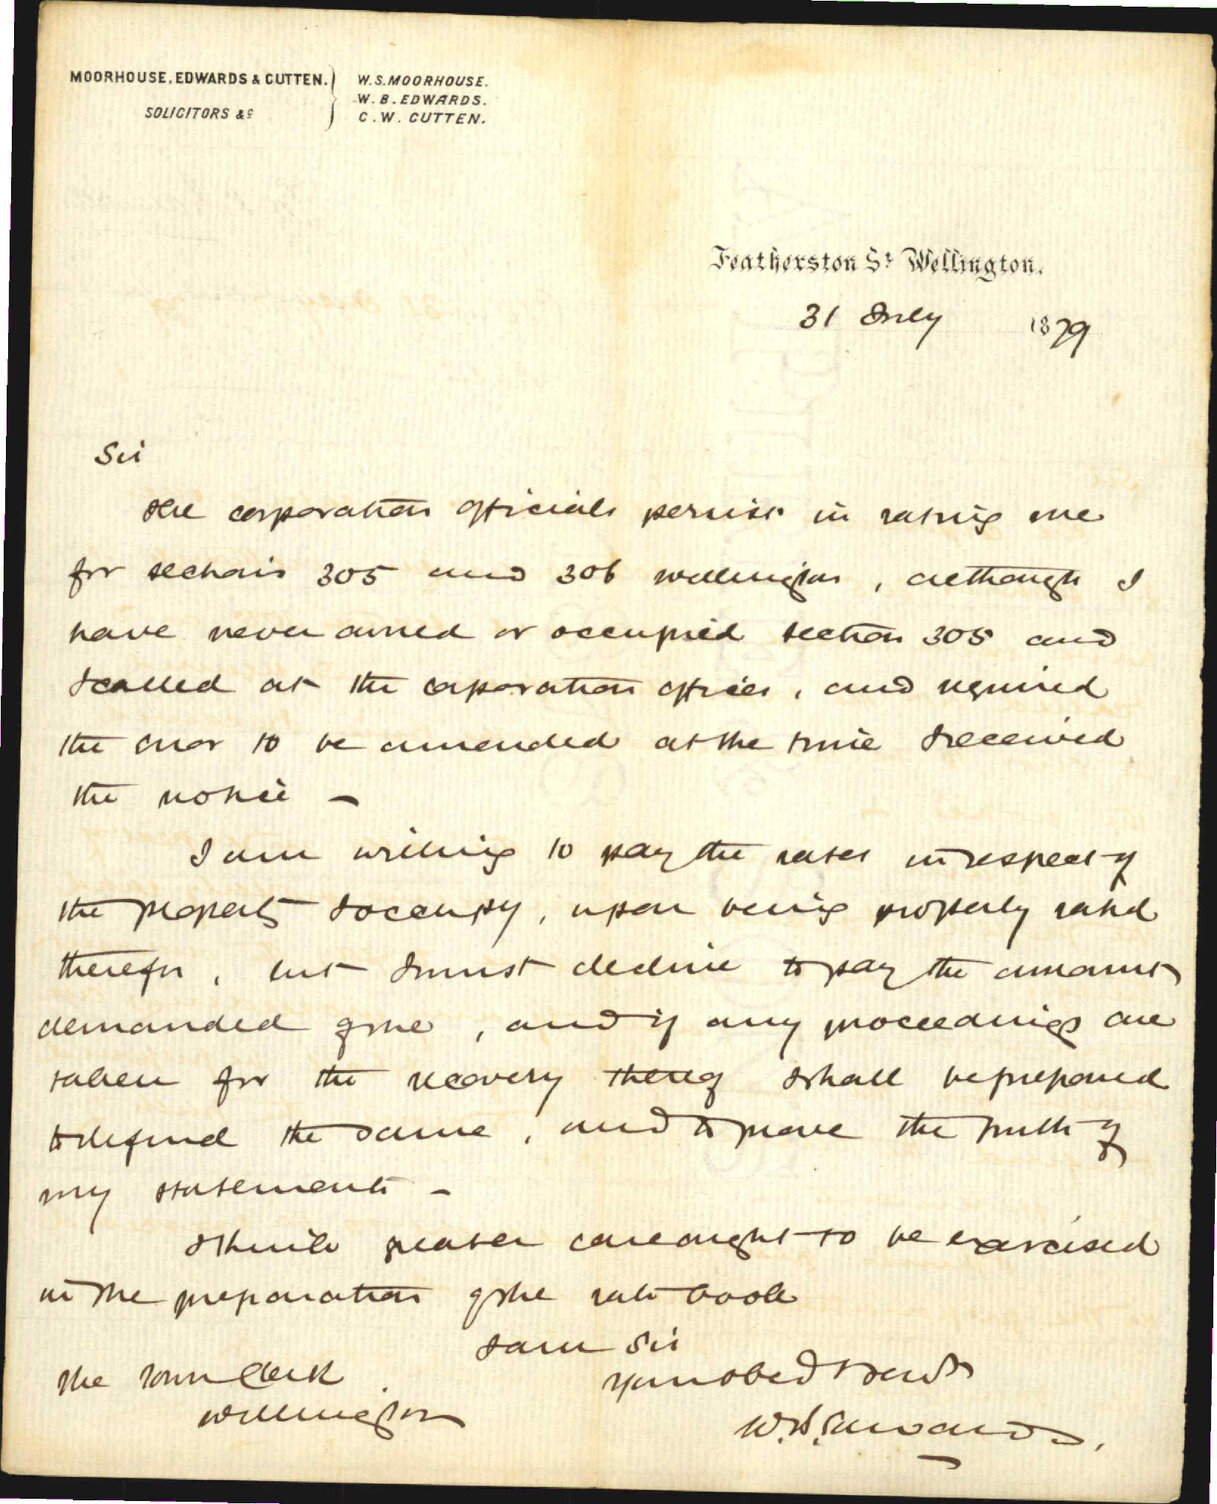 MOORHOUSE, EDWARDS & CUTTEN.
SOLICITORS &c
W. S. MOORHOUSE.
W. B. EDWARDS.
C. W. CUTTEN.
Featherston St. Wellington.
31 July 1879
Sir
The corporation officials persist in rating me
for sections 305 and 306 Wellington, although I
have never owned or occupied section 305 and
I called at the corporation offices, and required
the error to be amended at the time I received
the notice –
I am willing to pay the rates in respect of
the property I occupy, upon being properly rated
therefor, but I must decline to pay the amount
demanded of me, and if any proceedings are
taken for the recovery thereof I shall be prepared
to defend the same, and to prove the truth of
my statements –
I think greater care ought to be exercised
in the preparation of the rate book
I am Sir
Your obed Servt
W. B. Edwards.
The Town Clerk
Wellington